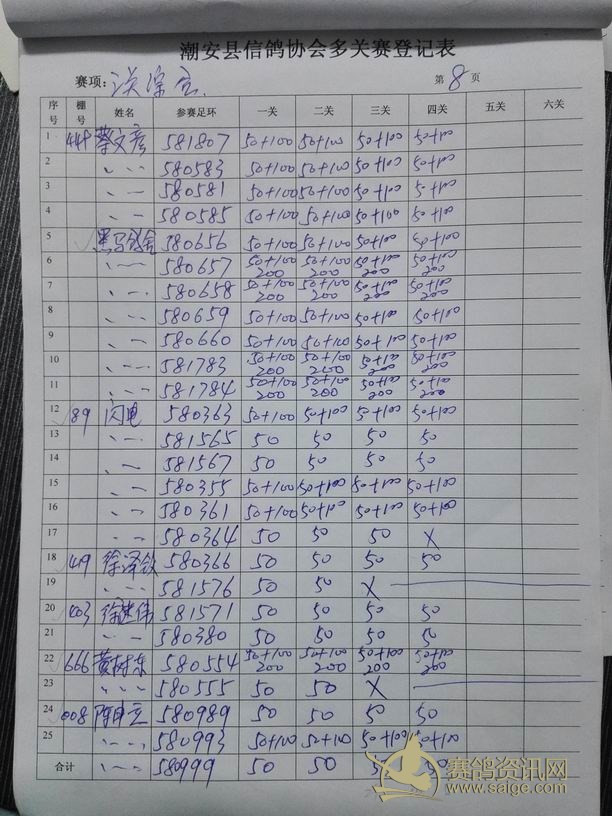 潮安县信鸽协会多关赛登记表
赛项: 第 8 页
序号 棚号 姓名 参赛足环 一关 二关 三关 四关 五关 六关
1 蔡文彦 581807 50+100 50+100 50+100 50+100
2 580583 50+100 50+100 50+100 50+100
3 580581 50+100 50+100 50+100 50+100
4 580585 50+100 50+100 50+100 50+100
5 黑马鸽舍 580656 50+100 50+100 50+100 50+100
6 580657 50+100 200 50+100 200 50+100 200 50+100 200
7 580658 50+100 200 50+100 200 50+100 200 50+100 200
8 580659 50+100 50+100 50+100 50+100
9 580660 50+100 50+100 50+100 50+100
10 581783 50+100 200 50+100 200 50+100 200 50+100 200
11 581784 50+100 200 50+100 200 50+100 200 50+100 200
12 89 闪电 580363 50+100 50+100 50+100 50+100
13 581565 50 50 50 50
14 581567 50 50 50 50
15 580355 50+100 50+100 50+100 50+100
16 580361 50+100 50+100 50+100 50+100
17 580364 50 50 50 X
18 419 徐泽钦 580366 50 50 50 50
19 581576 50 50 X
20 403 徐建伟 581571 50 50 50 50
21 580380 50 50 50 50
22 666 黄树东 580554 50+100 200 50+100 200 50+100 200 50+100 200
23 580555 50 50 X
24 008 580989 50 50 50 50
25 580993 50+100 50+100 50+100 50+100
合计 580999 50 50 50 50
赛鸽资讯网
www.saige.com